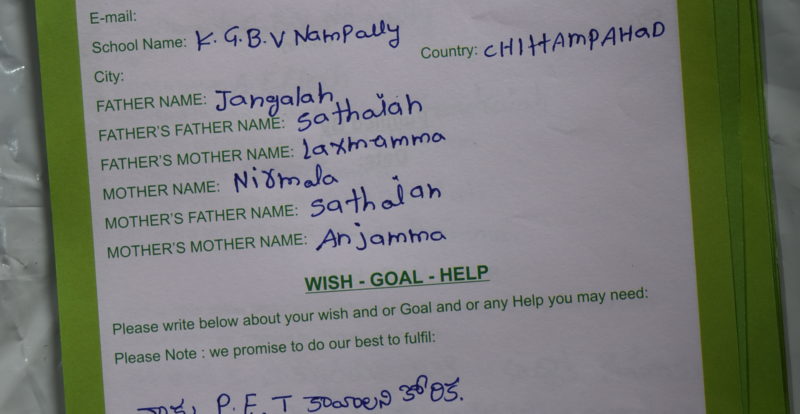 E-mail:
School Name: K.G.B.V Nampally
Country: CHIttAMPAHaD
City:
FATHER NAME: Jangalah
FATHER'S FATHER NAME: Sathaiah
FATHER'S MOTHER NAME: Laxmamma
MOTHER NAME: Nirmala
MOTHER'S FATHER NAME: Sathaiah
MOTHER'S MOTHER NAME: Anjamma
WISH - GOAL - HELP
Please write below about your wish and or Goal and or any Help you may need:
Please Note : we promise to do our best to fulfil:
నాకు P.E.T కావాలని కోరిక.